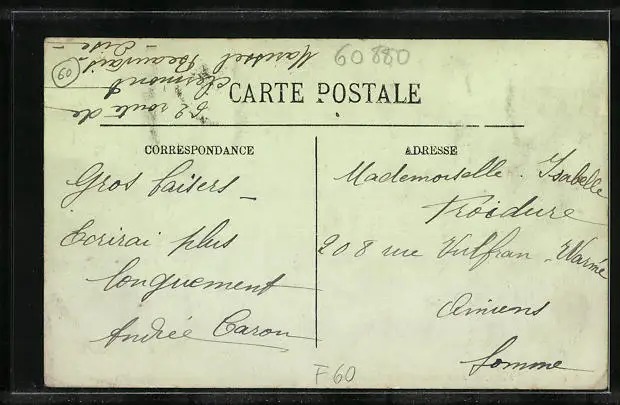 60880
60
52 route de
Clermont
Beauvais -
Oise -
CARTE POSTALE
CORRESPONDANCE
Gros baisers -
Ecrirai plus
longuement
Andrée Caron
ADRESSE
Mademoiselle. Isabelle
Froidure
208 rue Vulfran - Warmé
Amiens
Somme
F60